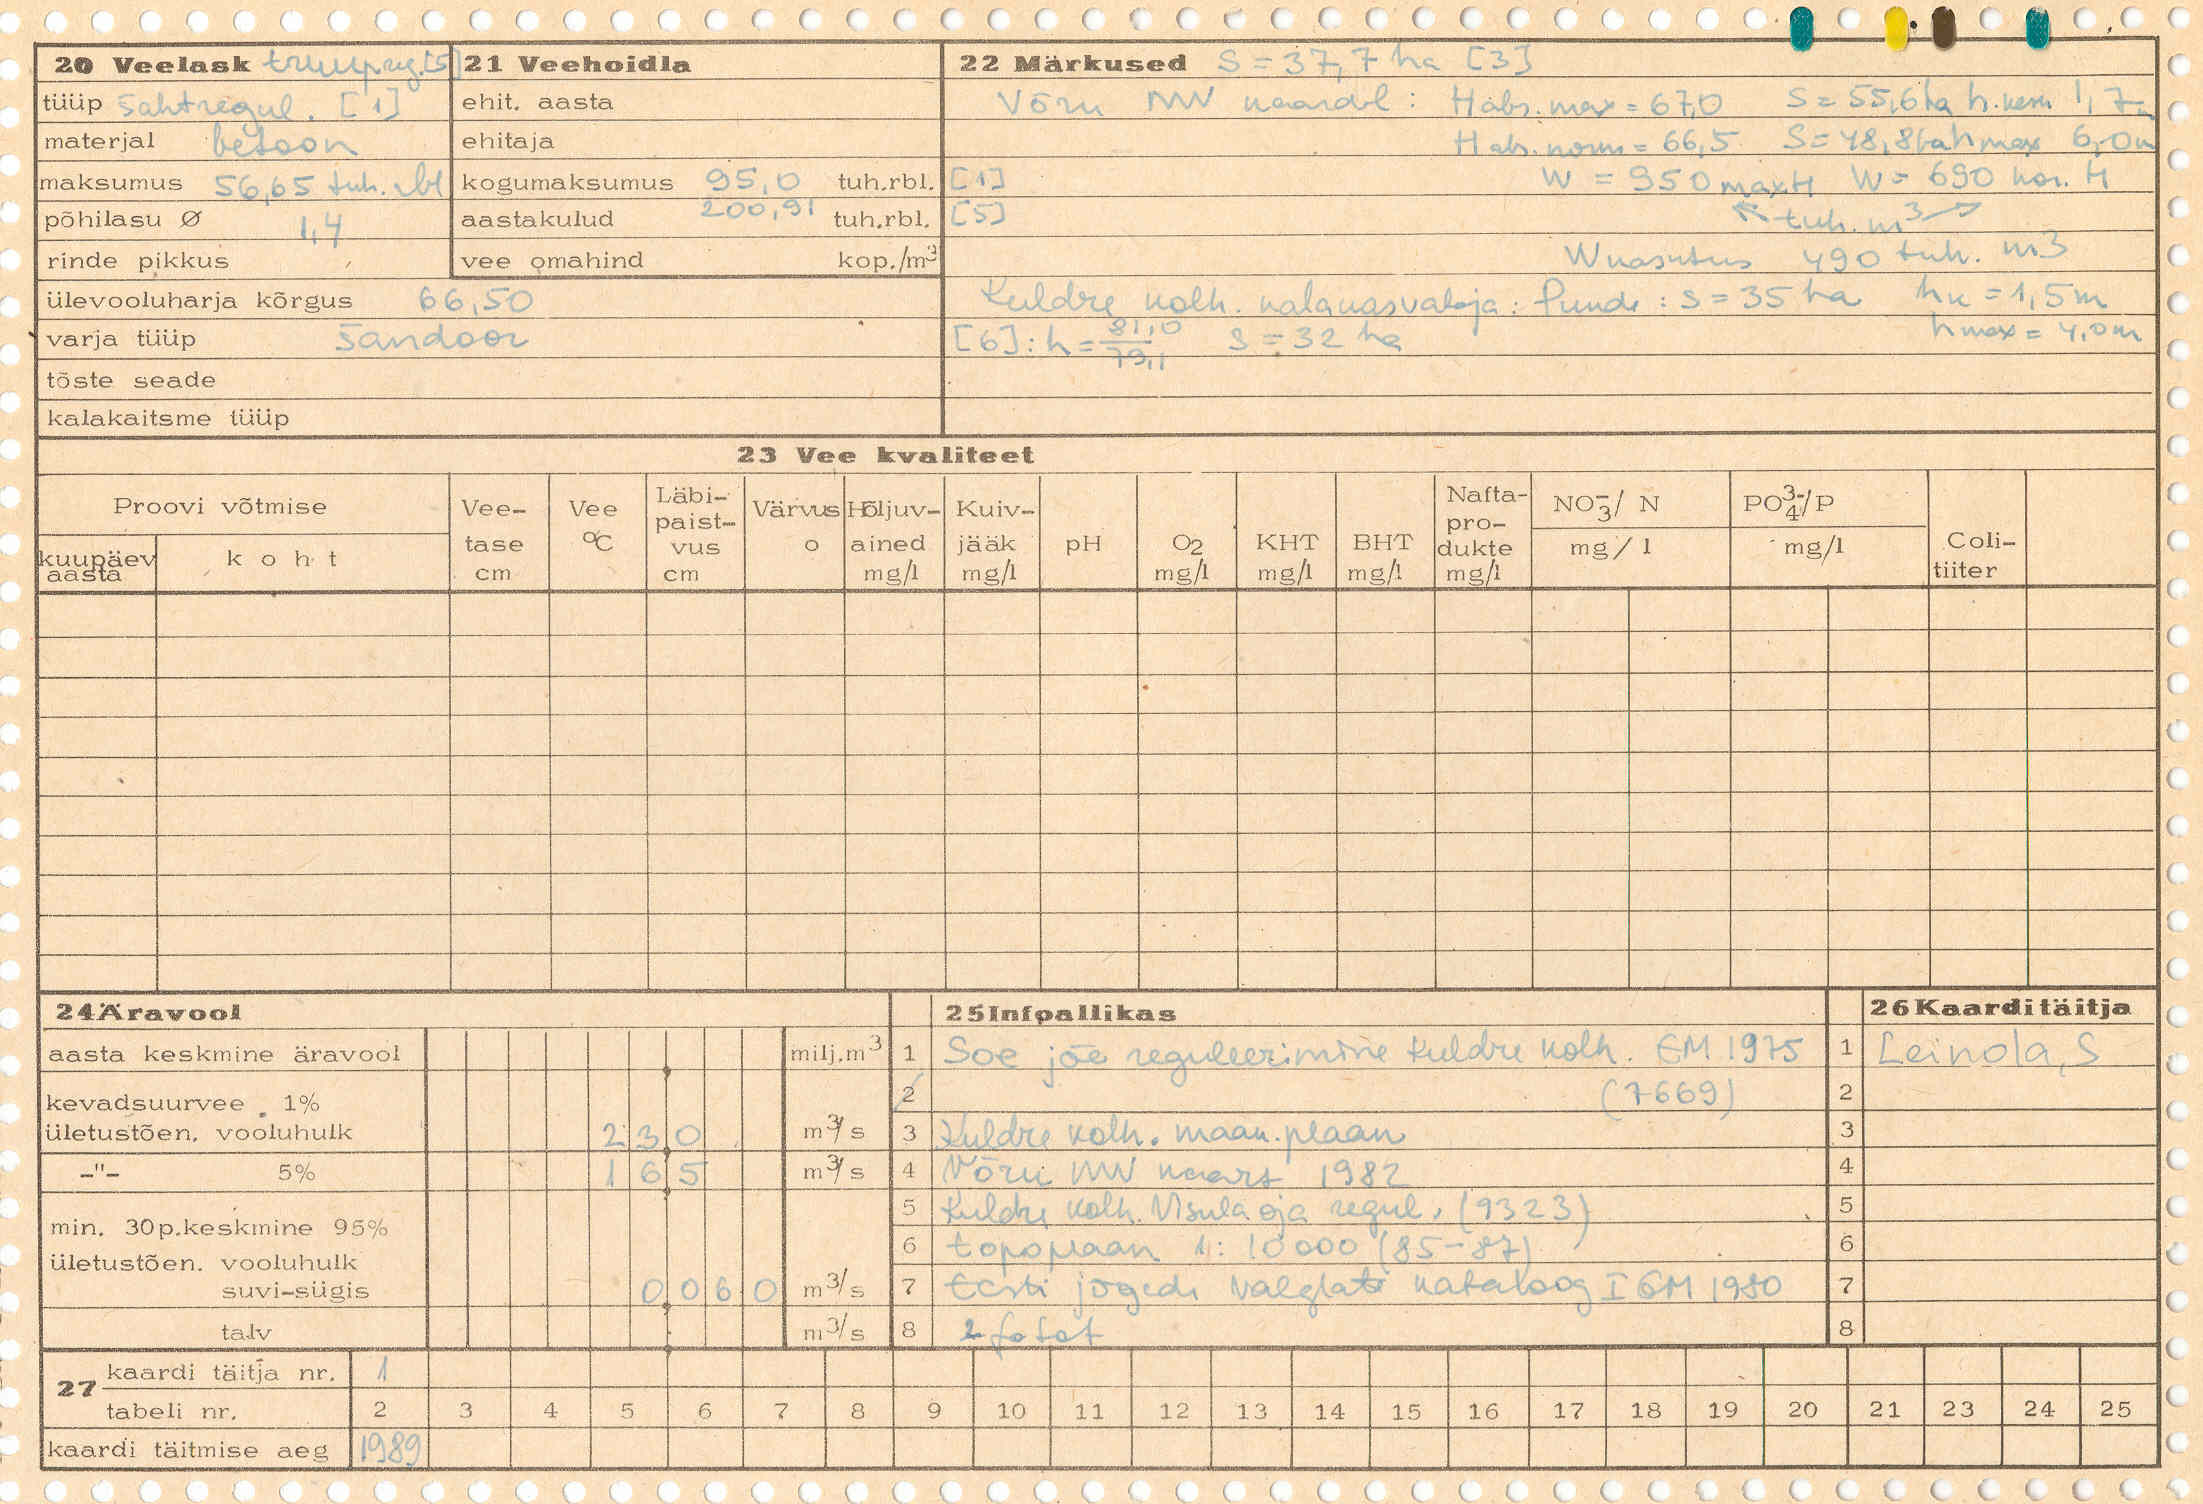 20 Veelask truupreg. [5]
tüüp šahtregul. [1]
materjal betoon
maksumus 56,65 tuh. rbl
põhilasu Ø 1,4
rinde pikkus
ülevooluharja kõrgus 66,50
varja tüüp šandoor
tõste seade
kalakaitsme tüüp
21 Veehoidla
ehit. aasta
ehitaja
kogumaksumus 95,0 tuh.rbl. [1]
aastakulud 200,91 tuh.rbl. [5]
vee omahind kop./m3
22 Märkused S = 37,7 ha [3]
Võru MV kaardil: Habs. max = 67,0 S = 55,6 ha h. kesk 1,7m
Habs. norm = 66,5 S = 48,8 ha hmax 6,0m
W = 950 maxH W = 690 nor. H
tuh. m3
Wkasutus 490 tuh. m3
Kuldre kolh. kalakasvataja: Punde: S = 35 ha hk = 1,5m
hmax = 4,0m
[6]: h = 81,0/79,1 S = 32 ha
23 Vee kvaliteet
Proovi võtmise
kuupäev aasta
koht
Vee-tase cm
Vee °C
Läbi-paist-vus cm
Värvus o
Hõljuv-ained mg/l
Kuiv-jääk mg/l
pH
O2 mg/l
KHT mg/l
BHT mg/l
Nafta-pro-dukte mg/l
NO3-/ N mg/l
PO4 3-/P mg/l
Coli-tiiter
24 Äravool
aasta keskmine äravool milj.m3
kevadsuurvee 1%
ületustõen. vooluhulk 23,0 m3/s
-"- 5% 16,5 m3/s
min. 30p.keskmine 95%
ületustõen. vooluhulk
suvi-sügis 0,060 m3/s
talv m3/s
25 Infoallikas
1 Soe jõe reguleerimine Kuldre kolh. EM 1975
2 (7669)
3 Kuldre kolh. maak. plaan
4 Võru MV kaart 1982
5 Kuldre kolh. Visula oja regul. (9323)
6 topoplaan 1:10000 (85-87)
7 Eesti jõgede valglate kataloog I EM 1980
8 2 fotot
26 Kaarditäitja
1 Leinola, S
2
3
4
5
6
7
8
27 kaardi täitja nr. 1
tabeli nr. 2 3 4 5 6 7 8 9 10 11 12 13 14 15 16 17 18 19 20 21 23 24 25
kaardi täitmise aeg 1989